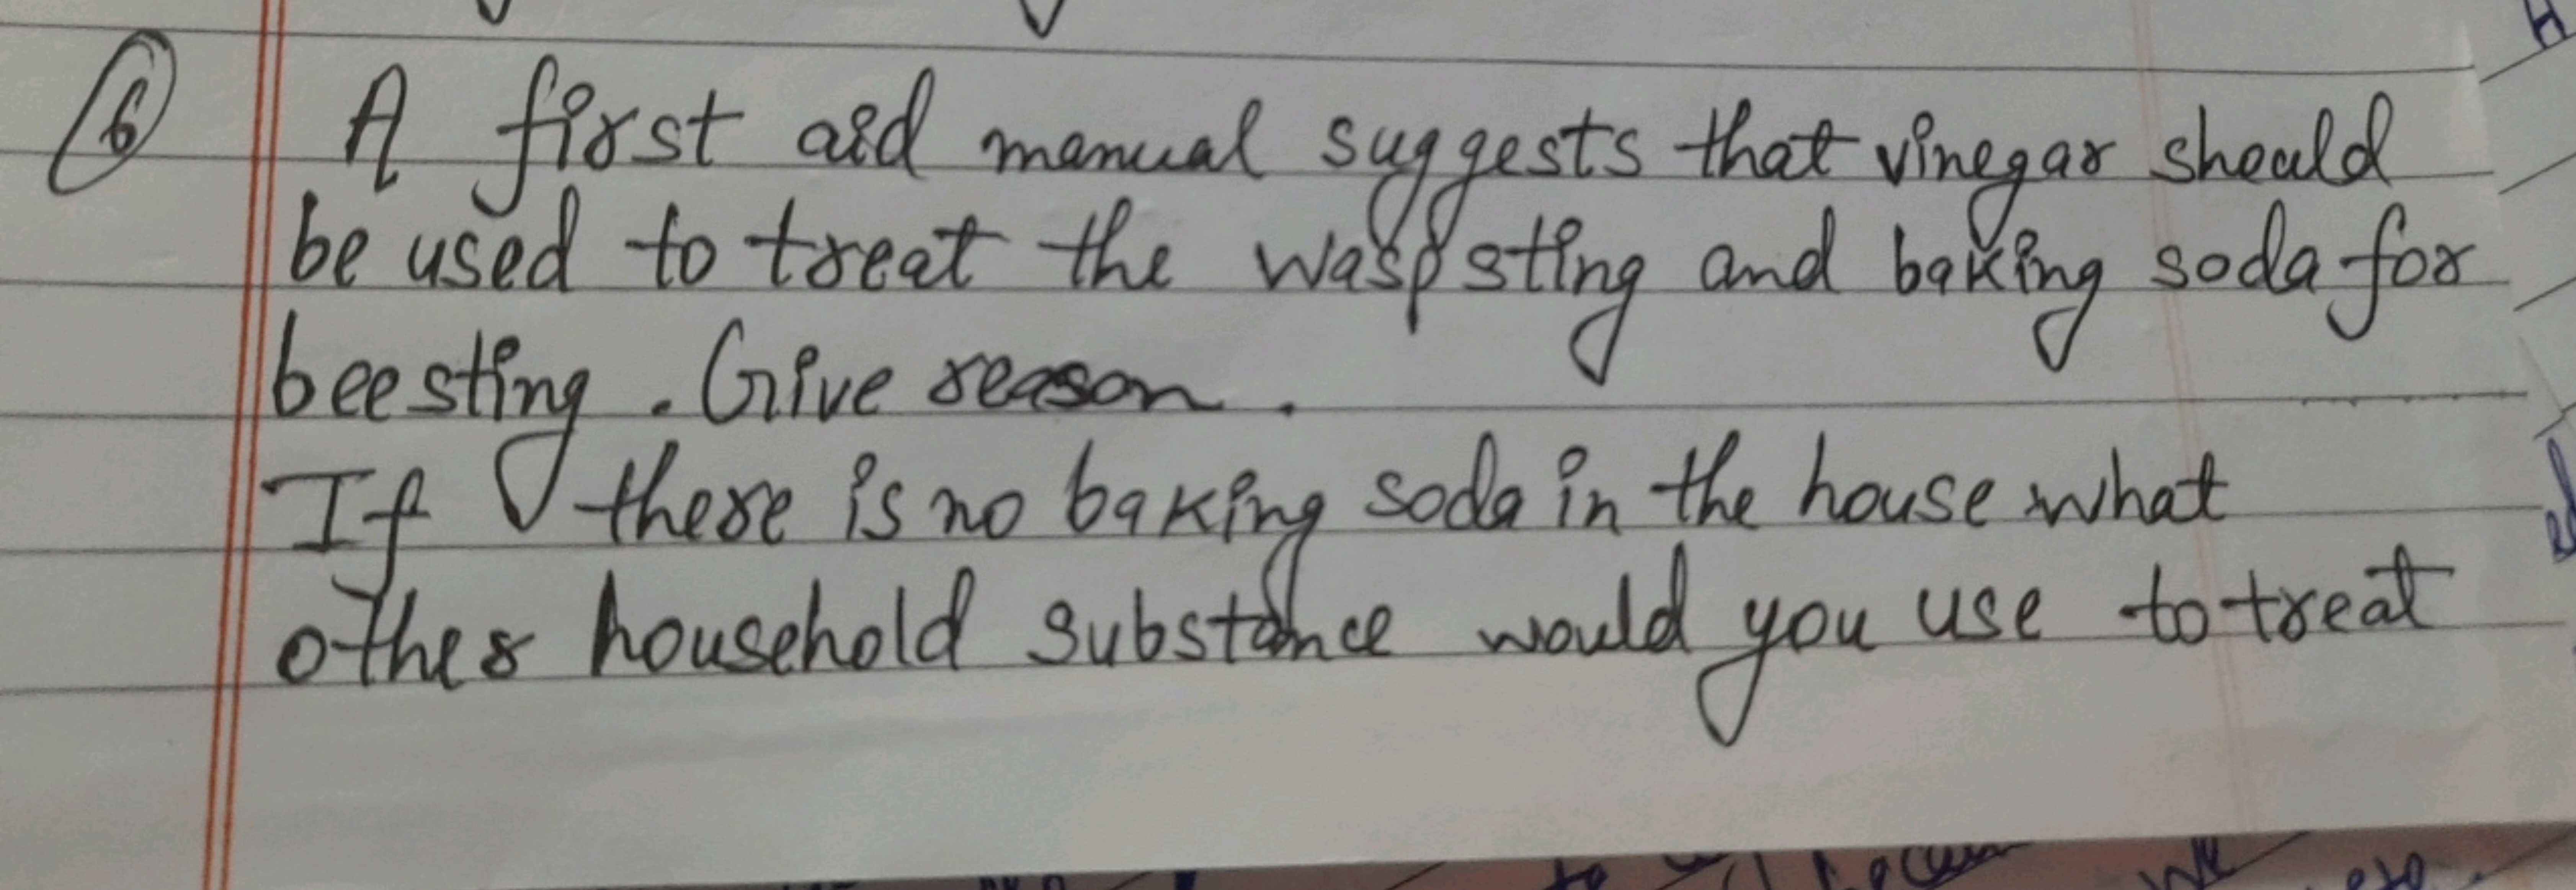 6 A first aid manual suggests that vinegar should
be used to treat the wasp sting and baking soda for
bee sting. Give reason.
If there is no baking soda in the house what
other household substance would you use to treat